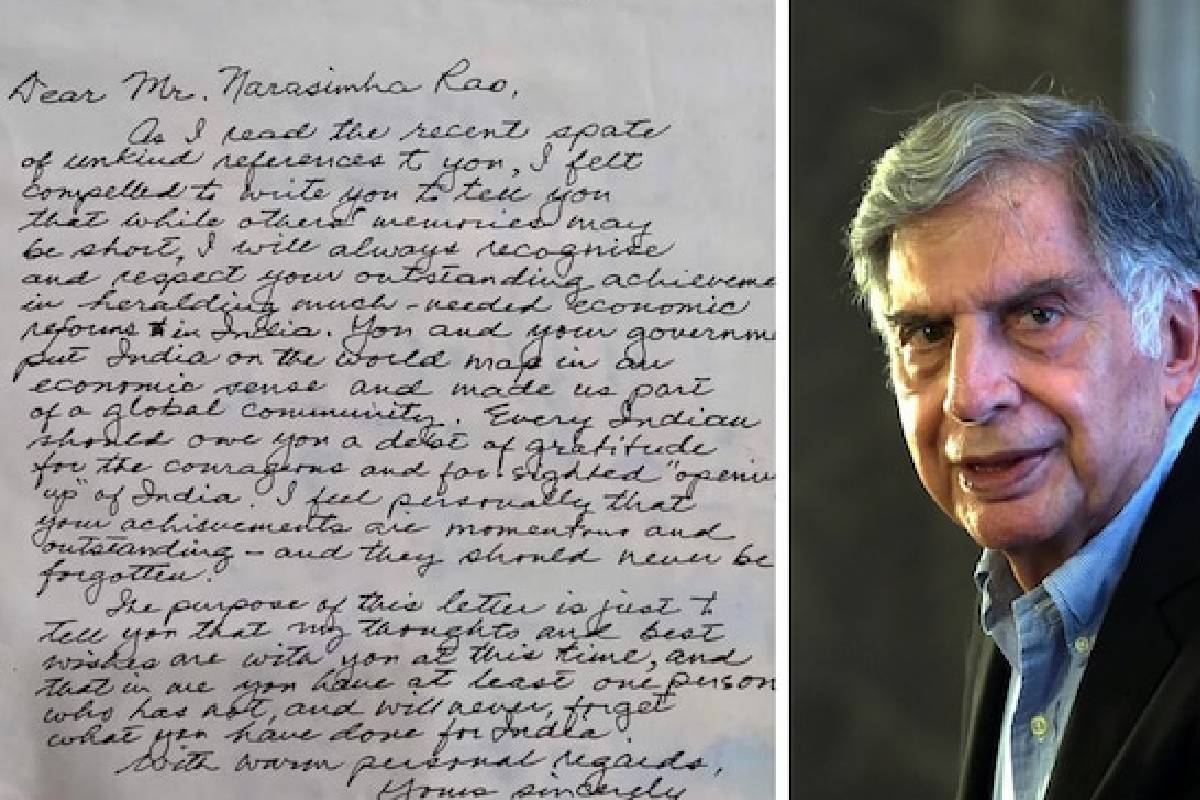 Dear Mr. Narasimha Rao,
As I read the recent spate
of unkind references to you, I felt
compelled to write you to tell you
that while others' memories may
be short, I will always recognise
and respect your outstanding achieveme
in heralding much-needed economic
reforms in India. You and your governme
put India on the world map in an
economic sense and made us part
of a global community. Every Indian
should owe you a debt of gratitude
for the courageous and far-sighted "openin
up" of India. I feel personally that
your achievements are momentous and
outstanding – and they should never be
forgotten.
The purpose of this letter is just to
tell you that my thoughts and best
wishes are with you at this time, and
that in me you have at least one person
who has not, and will never, forget
what you have done for India.
With warm personal regards,
Yours sincerely